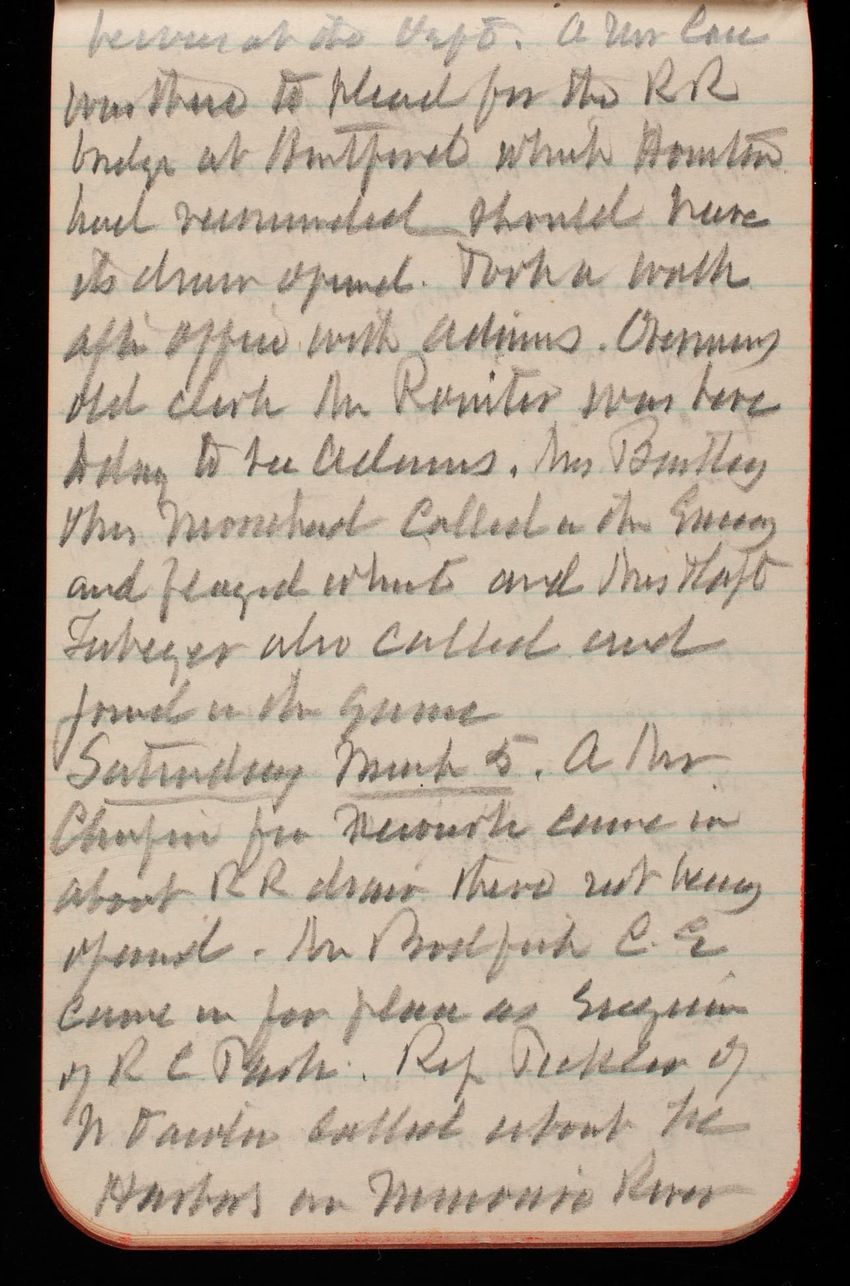 at the Dept. A Mr Case
was there to plead for the RR
bridge at Hartford which Houston
had recommended should have
its draw opened. Took a walk
after office with Adams.
old clerk Mr was here
today to see Adams. Mrs Bentley
Morehead Called in the Evening
and played whist and
also called and
joined in the game
Saturday March 5. A Mr
Chapin from Newark came in
about RR draw there not being
opened. Mr Bodfish C. E.
came in for place as Engineer
of R C Park. Rep Pickler of
called about Ice
Harbors on Missouri River